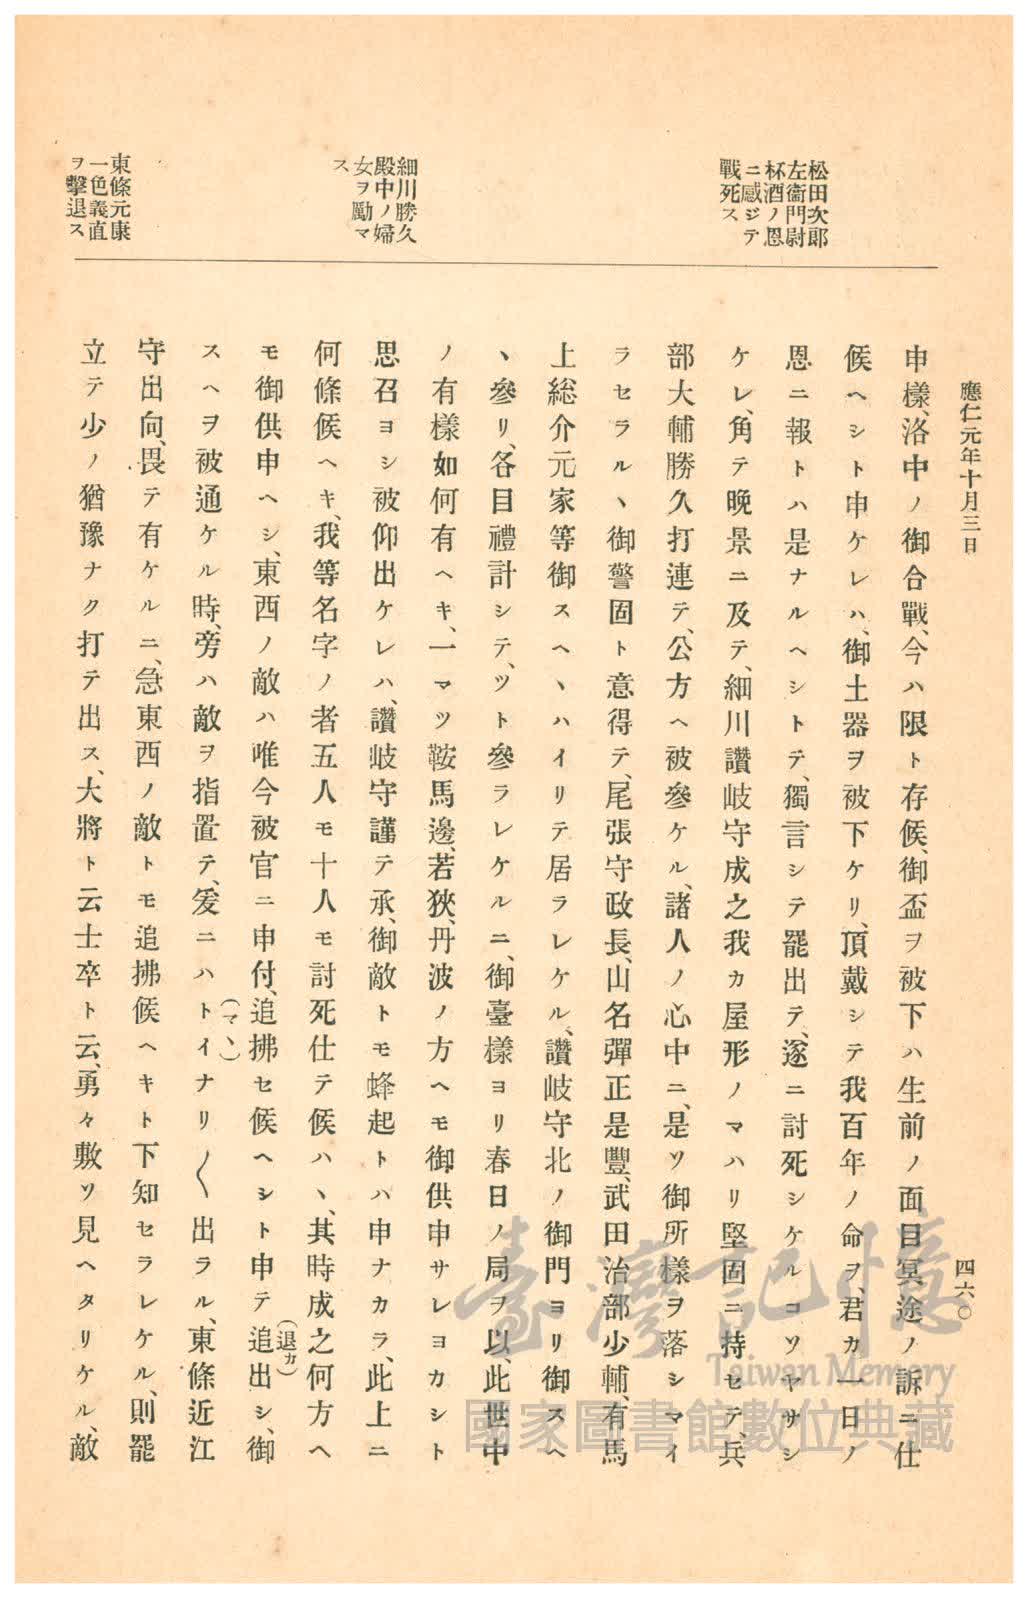 應仁元年十月三日
四六〇
松田次郎
左衞門尉
杯酒ノ恩
ニ感ジテ
戰死ス
細川勝久
殿中ノ婦
女ヲ勵マ
ス
東條元康
一色義直
ヲ擊退ス
申樣、洛中ノ御合戰、今ハ限ト存候、御盃ヲ被下ハ生前ノ面目冥途ノ訴ニ仕
候ヘシト申ケレハ、御土器ヲ被下ケリ、頂戴シテ我百年ノ命ヲ、君カ一日ノ
恩ニ報トハ是ナルヘシトテ、獨言シテ罷出テ、遂ニ討死シケルコソヤサシ
ケレ、角テ晩景ニ及テ、細川讚岐守成之我カ屋形ノマハリ堅固ニ持セテ、兵
部大輔勝久打連テ、公方ヘ被參ケル、諸人ノ心中ニ、是ソ御所樣ヲ落シマイ
ラセラルヽ御警固ト意得テ、尾張守政長、山名彈正是豐、武田治部少輔、有馬
上総介元家等御スヘヽハイリテ居ラレケル、讚岐守北ノ御門ヨリ御スヘ
ヽ參リ、各目禮計シテ、ツト參ラレケルニ、御臺樣ヨリ春日ノ局ヲ以、此世中
ノ有樣如何有ヘキ、一マツ鞍馬邊、若狹、丹波ノ方ヘモ御供申サレヨカシト
思召ヨシ被仰出ケレハ、讚岐守謹テ承、御敵トモ蜂起トハ申ナカラ、此上ニ
何條候ヘキ、我等名字ノ者五人モ十人モ討死仕テ候ハヽ、其時成之何方ヘ
モ御供申ヘシ、東西ノ敵ハ唯今被官ニ申付、追拂セ候ヘシト申テ追出シ、御
（退カ）
スヘヲ被通ケル時、旁ハ敵ヲ指置テ、爰ニハトイナリ〱出ラル、東條近江
（マヽ）
守出向、畏テ有ケルニ、急東西ノ敵トモ追拂候ヘキト下知セラレケル、則罷
立テ少ノ猶豫ナク打テ出ス、大將ト云士卒ト云、勇々敷ソ見ヘタリケル、敵
臺灣記憶
Taiwan Memory
國家圖書館數位典藏